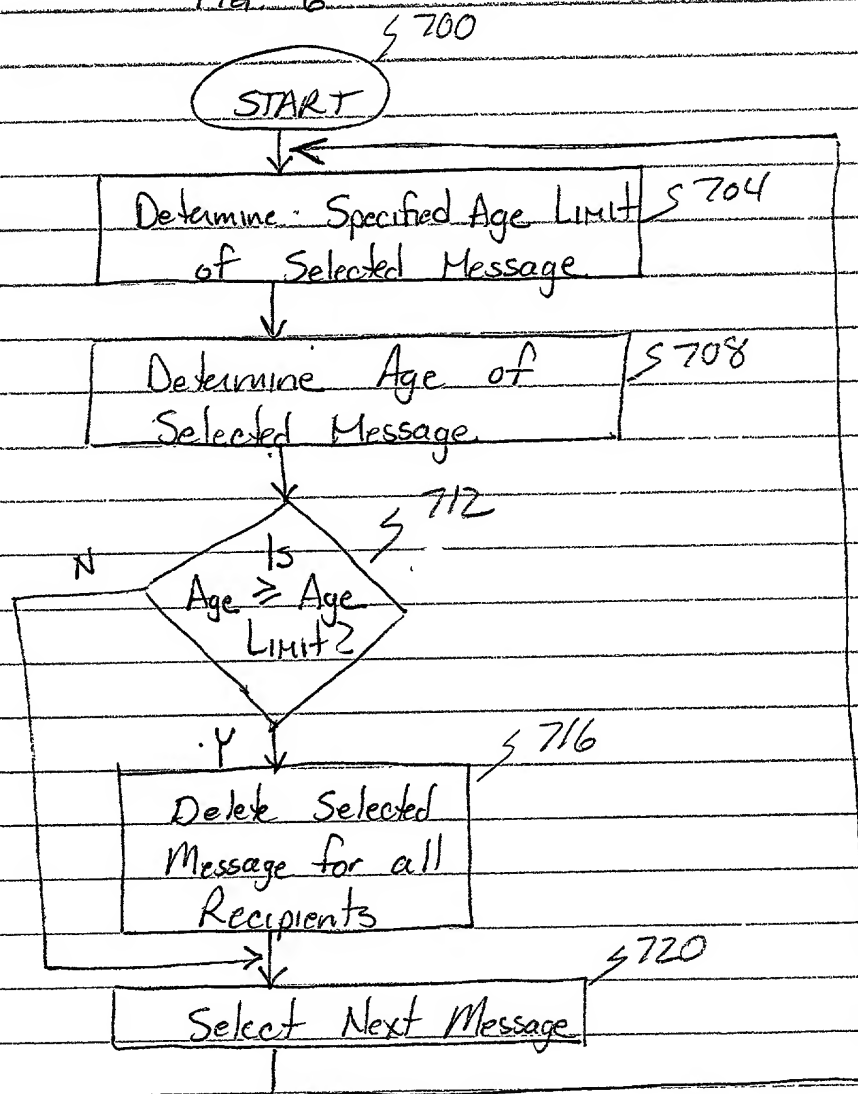 Fig. 6
700
START
Determine Specified Age Limit
of Selected Message
704
Determine Age of
Selected Message
708
712
Is
Age ≥ Age
Limit?
N
Y
716
Delete Selected
Message for all
Recipients
720
Select Next Message